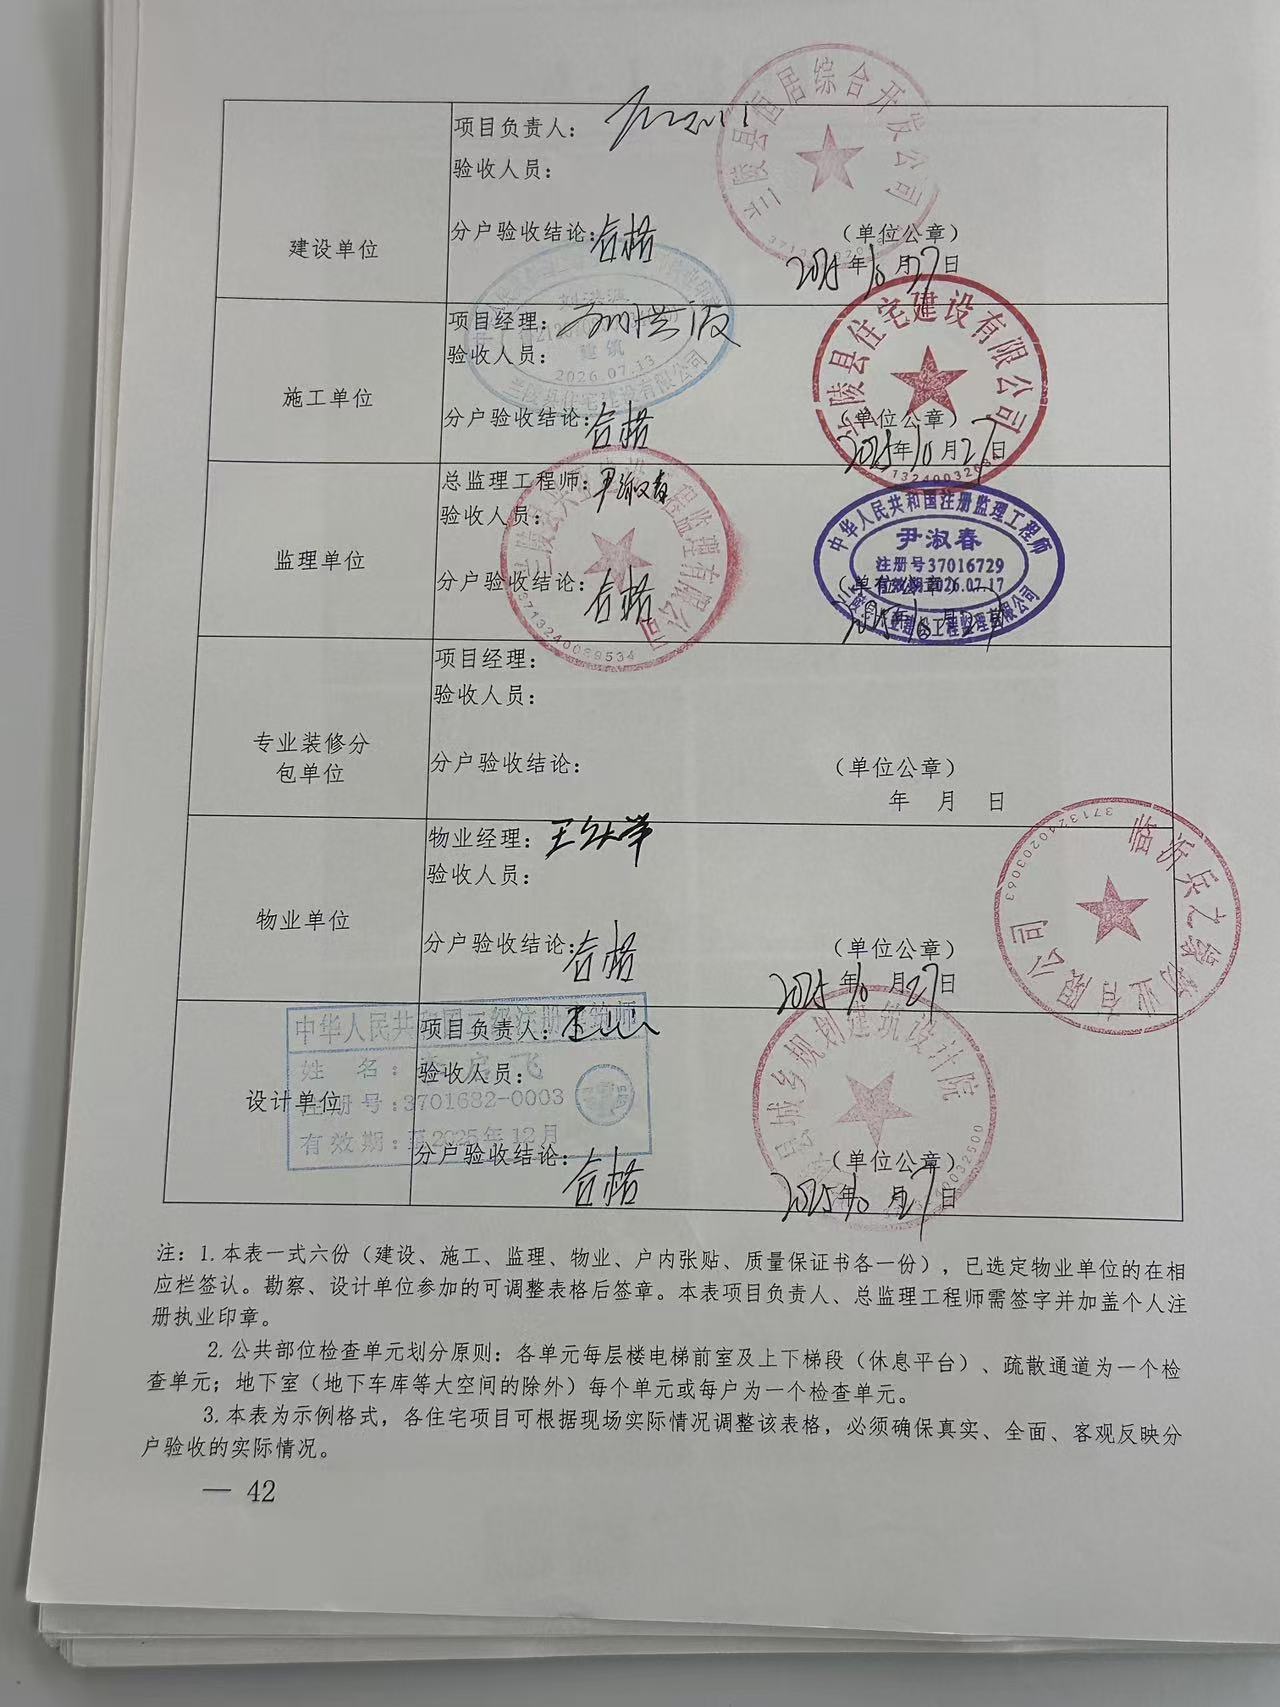 建设单位
项目负责人：
验收人员：
分户验收结论：合格
（单位公章）
2025年10月27日
兰陵县恒居综合开发公司
施工单位
项目经理：刘洪波
验收人员：
分户验收结论：合格
（单位公章）
2025年10月27日
建筑
2026.07.13
兰陵县住宅建设有限公司
兰陵县住宅建设有限公司
监理单位
总监理工程师：尹淑春
验收人员：
分户验收结论：合格
（单位公章）
2025年10月27日
3713240089534
中华人民共和国注册监理工程师
尹淑春
注册号37016729
有效期2026.07.17
专业装修分
包单位
项目经理：
验收人员：
分户验收结论：
（单位公章）
年 月 日
物业单位
物业经理：
验收人员：
分户验收结论：合格
（单位公章）
2025年10月27日
3713240203063
设计单位
项目负责人：
验收人员：
分户验收结论：合格
（单位公章）
2025年10月27日
姓 名：
注册号：3701682-0003
有效期：至2025年12月
县城乡规划建筑设计院
注：1.本表一式六份（建设、施工、监理、物业、户内张贴、质量保证书各一份），已选定物业单位的在相
应栏签认。勘察、设计单位参加的可调整表格后签章。本表项目负责人、总监理工程师需签字并加盖个人注
册执业印章。
2.公共部位检查单元划分原则：各单元每层楼电梯前室及上下梯段（休息平台）、疏散通道为一个检
查单元；地下室（地下车库等大空间的除外）每个单元或每户为一个检查单元。
3.本表为示例格式，各住宅项目可根据现场实际情况调整该表格，必须确保真实、全面、客观反映分
户验收的实际情况。
— 42